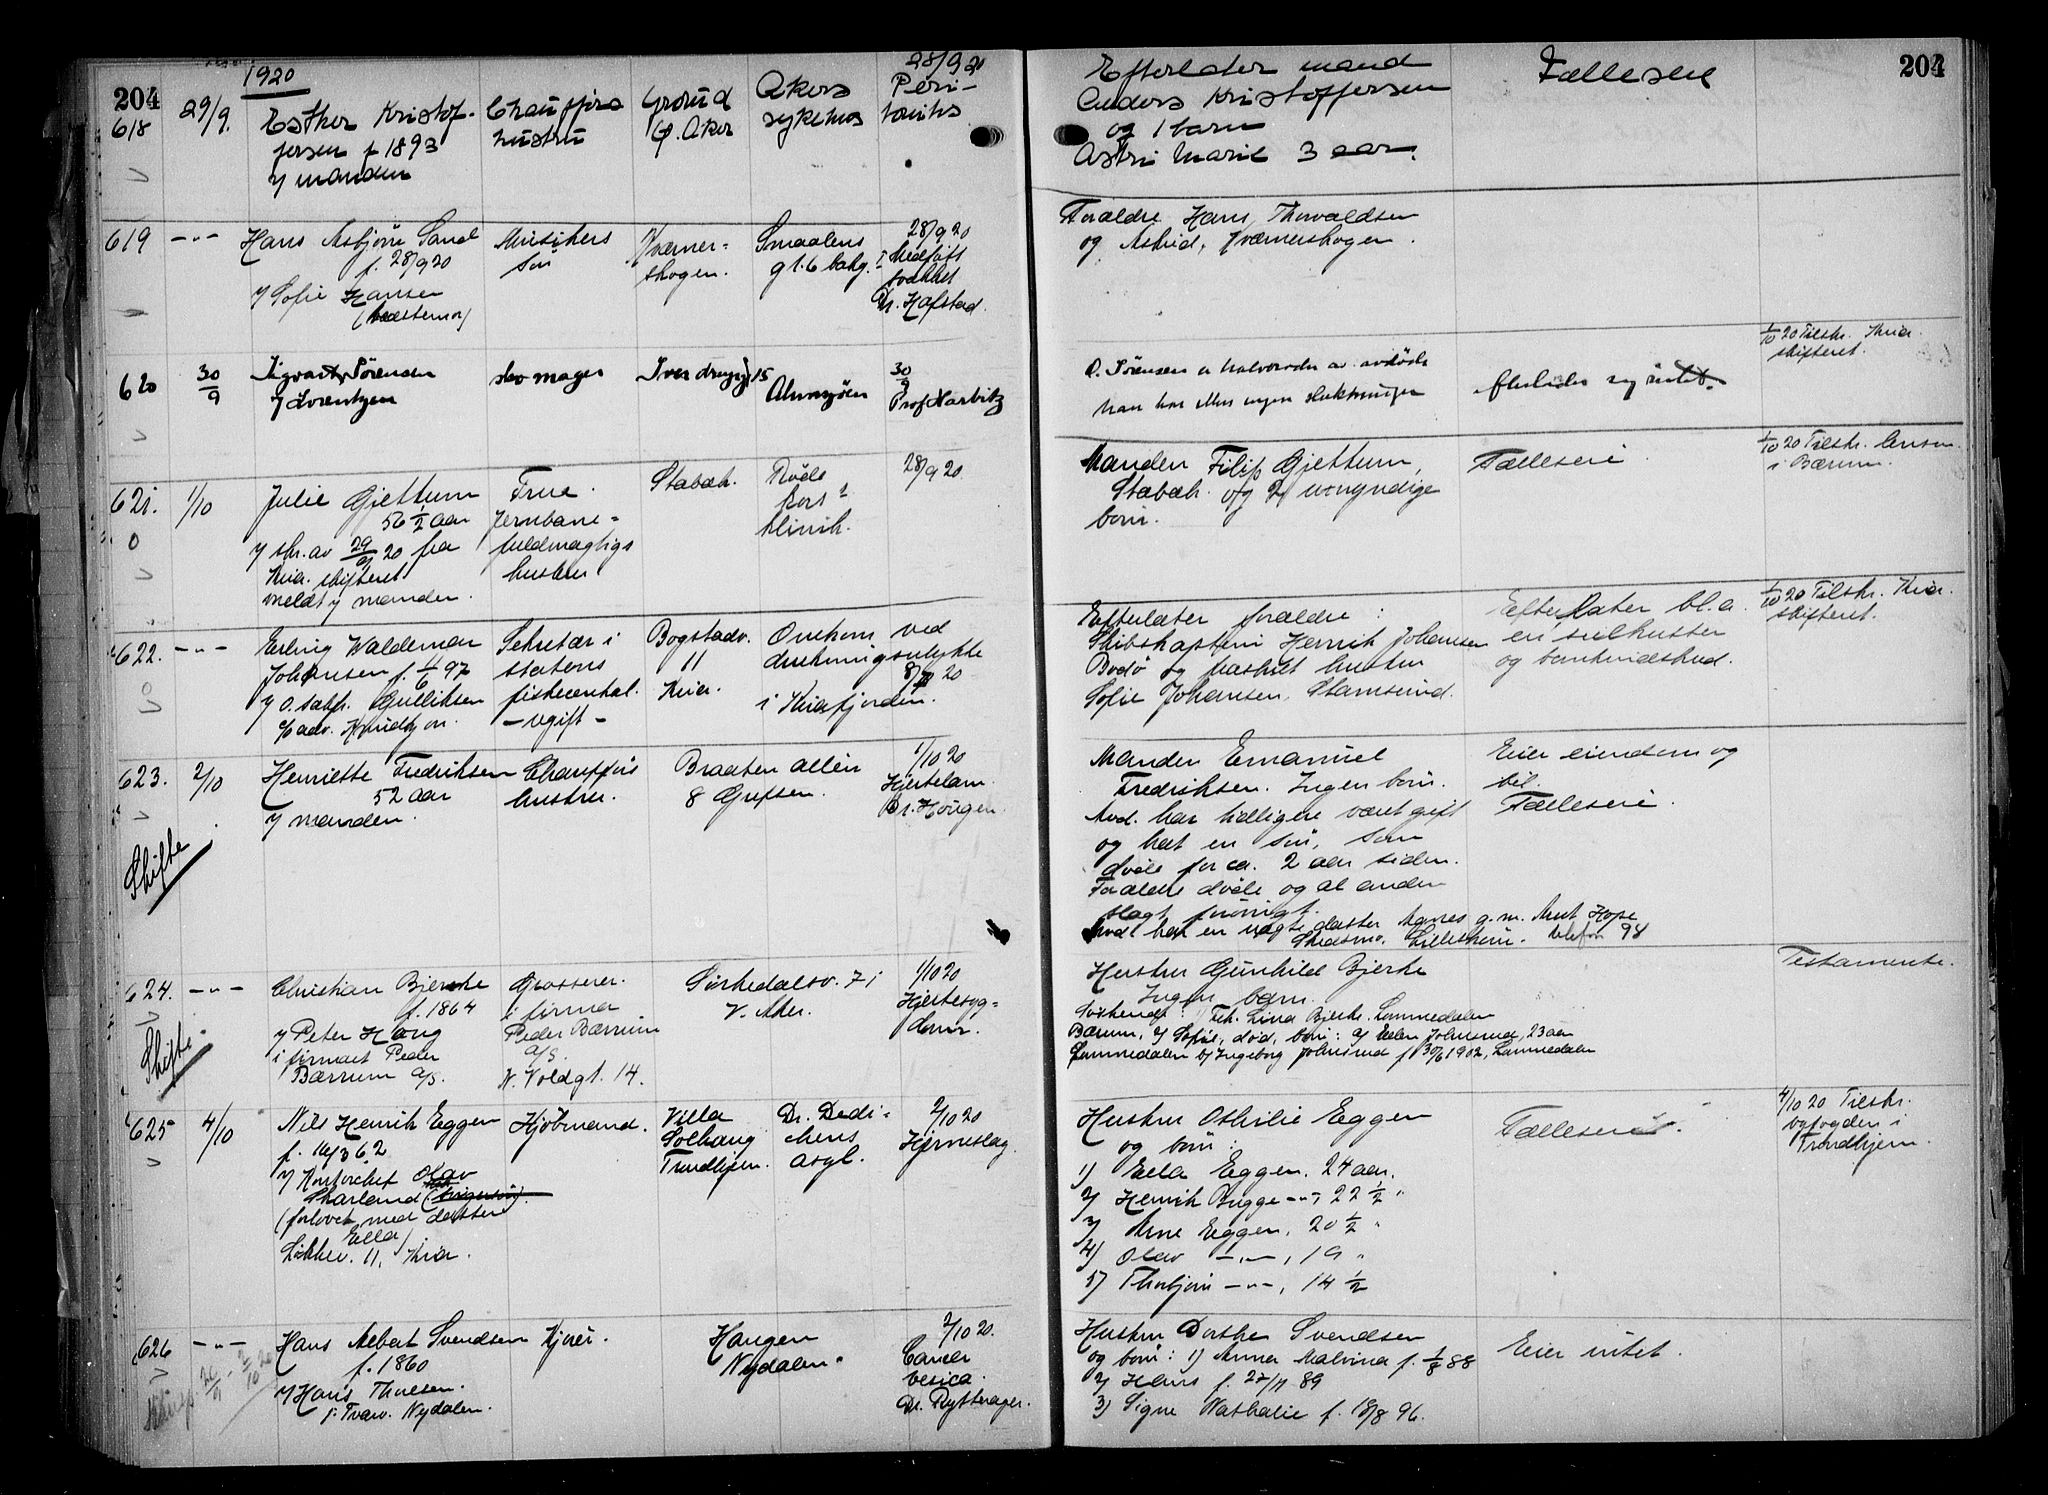 204
1920
28/9 20
204
618
29/9.
Esther Kristof-
fersen f 1893
v/ manden
Chaufførs
hustru
Grorud
Ø. Aker
Akers
sykehus
Peri-
tonitis
Efterlater mand
Anders Kristoffersen
og 1 barn
Astri Marie 3 aar.
Fælleseie
619 -"- Hans Asbjørn Sand
f. 28/9 20
v/ Sofie Hansen
(bestemor)
Musikers
søn
Kværner-
skogen.
Smaalens
gt. 6 bakg.
28/9 20
Medfødt
svakhet
Dr. Hafstad.
Forældre Hans Thorvaldsen
og Astrid, Kværnerskogen.
620
30/9
Sørensen
v/ Lorentzen
skomager
15
30/9
Prof Harbitz
O. Sørensen er halvbroder av avdøde
han har ellers ingen slektninger
1/10 20 Tilskr. Kria.
skifteret.
621.
1/10
Julie Gjettum
56 1/2 aar
v/ skr. av 29/9 20 fra
Kria. skifteret
meldt v/ manden.
Frue.
Jernbane-
fuldmægtigs
hustru
Stabæk.
Røde
kors
klinik.
28/9 20
Manden Filip Gjettum,
Stabæk. og 2 umyndige
børn.
Fælleseie.
1/10 20 Tilskr. lensm.
i Bærum.
622. -"-
Erling Waldemar
Johansen f. 1/6 97
v/ o.sakf. Gulliksen
c/o adv. Knudtzon.
Sekretær i
statens
fiskecentral.
- ugift -
Bogstadv.
11
Kria.
Omkom ved
drukningsulykke
8/8 20
i Kriafjorden.
Efterlater forældre:
Skibskaptein Henrik Johansen
Bodø og fraskilt hustru
Sofie Johansen, Stamsund.
Efterlater bl.a.
en seilkutter
og bankindskud.
1/10 20 Tilskr. Kria.
skifteret.
623.
2/10
Henriette Fredriksen
52 aar
v/ manden.
Chaufførs
hustru.
Braaten allé
8 Grefsen.
1/10 20
Hjertelam.
Dr. Hougen.
Skifte
Manden Emanuel
Fredriksen. Ingen børn.
Avd. har tidligere været gift
og hat en søn, som
døde for ca. 2 aar siden.
Forældre døde og al anden
slegt
Avd. har en datter Agnes g.m. Knut Hope
Skedsmo. Lillestrøm. telefon 98
Eier eiendom og
bil.
Fælleseie.
624. -"-
Christian Bjerke
f. 1864
v/ Peter Haug
i firmaet Peder
Bærrum A/S.
Grosserer.
i firma
Peder Bærrum
A/S.
N. Voldgt. 14.
Sørkedalsv. 71
V. Aker.
1/10 20
Hjertesyg-
dom.
Skifte
Hustru Gunhild Bjerke
Ingen barn.
Søskende: Frk. Lina Bjerke. Lommedalen
Bærum. 2/ Sofie, død, børn: a/ Ellen Johnsrud, 23 aar
Lommedalen b/ Ingeborg Johnsrud f 30/6 1902, Lommedalen
Testamente.
625
4/10
Nils Henrik Eggen
f. 16/3 62
v/ Kontorchef Olav
Skarland
(forlovet med datter
Ella)
Løkkev. 11, Kria.
Kjøbmand.
Villa
Solhaug
Trondhjem.
Dr. Dedi-
chens
asyl.
2/10 20
Hjerneslag.
Hustru Othilie Eggen
og børn:
1) Ella Eggen. 24 aar.
2) Henrik Bugge -"-, 22 1/2 "
3) Arne Eggen, 20 1/2 "
4) Olav -"-, 19 "
5) Thorbjørn -"-, 14 1/2
Fælleseie.
4/10 20 Tilskr.
byfogden i
Trondhjem.
626 -"-
Hans Albert Svendsen
f. 1860
v/ Hans Thoresen.
Nydalen.
Kjører.
Haugen
Nydalen.
2/10 20.
Cancer
vesica.
Dr. Rytterager.
Hustru Dorthe Svendsen
og børn: 1) Anna Malvina f. 1/8 88
2) Hans f. 27/11 89
3) Signe Nathalie f. 18/8 96.
Eier intet.